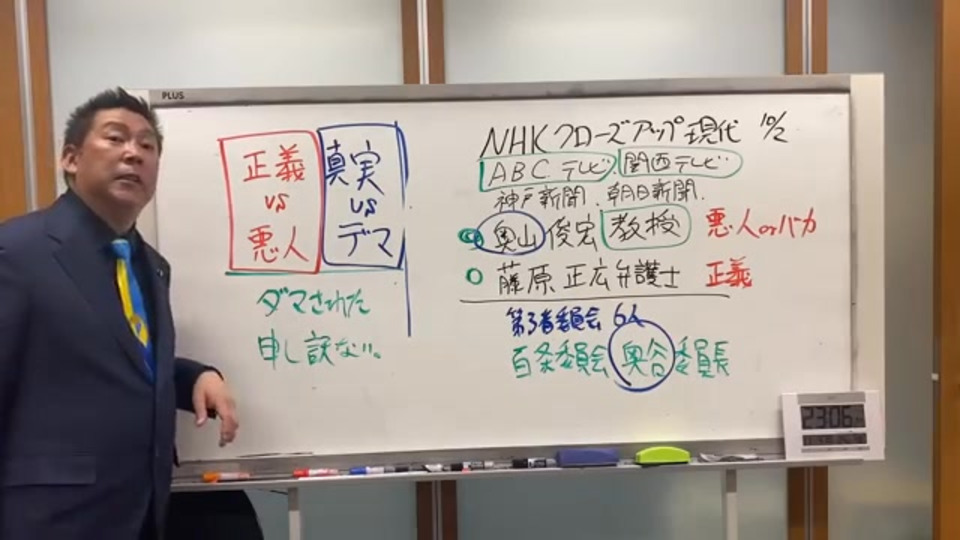 PLUS
正義
vs
悪人
真実
vs
デマ
ダマされた
申し訳ない。
NHKクローズアップ現代 10/2
ABCテレビ、関西テレビ
神戸新聞、朝日新聞、
奥山俊宏教授 悪人orバカ
藤原正広弁護士 正義
第3者委員会 6人
百条委員会 奥谷委員長
23:06